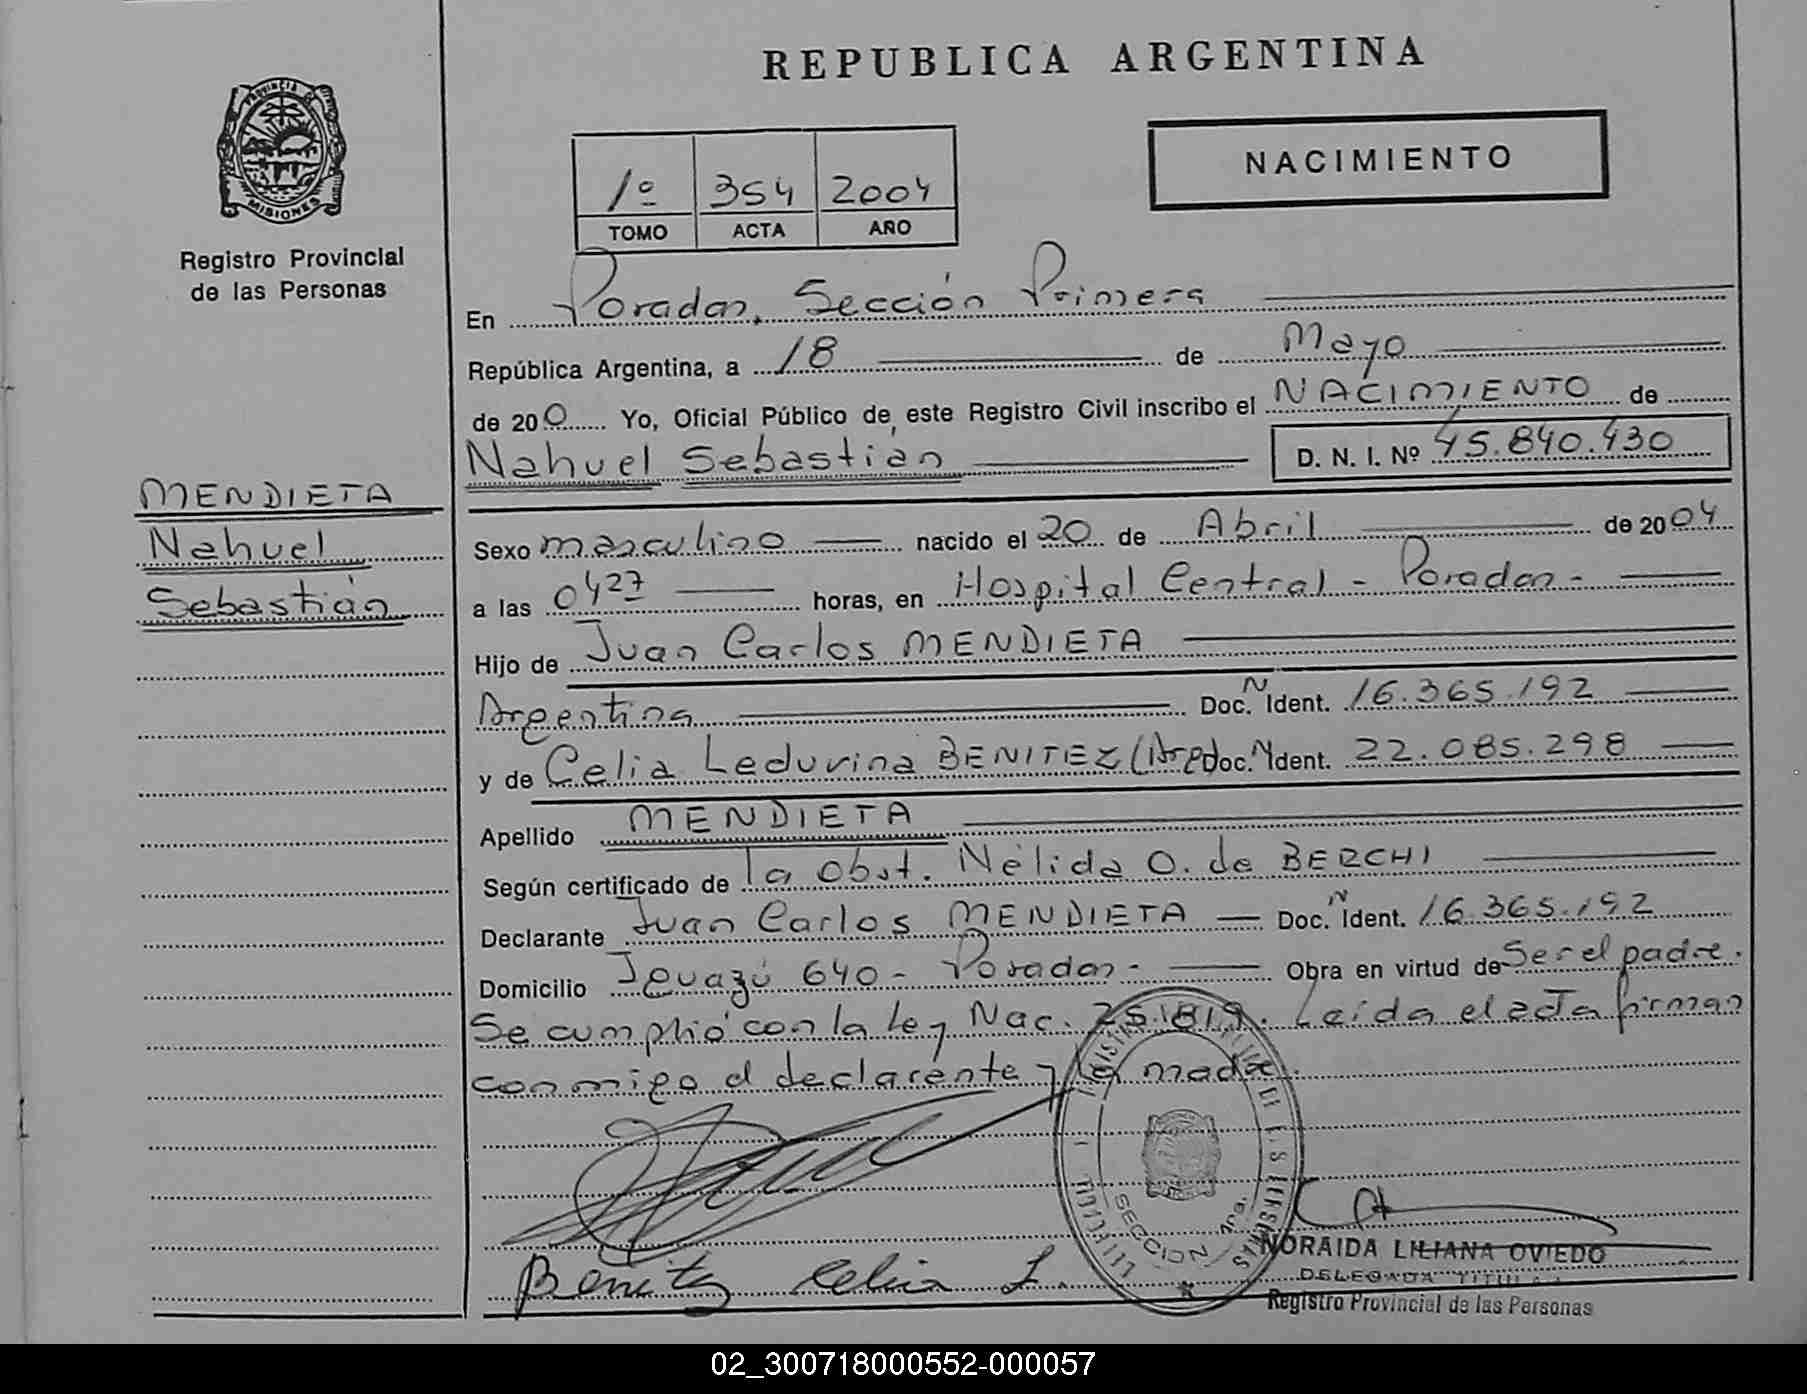 REPUBLICA ARGENTINA
PROVINCIA DE
MISIONES
Registro Provincial
de las Personas
NACIMIENTO
1º 354 2004
TOMO ACTA AÑO
En Posadas, Sección Primera
República Argentina, a 18 de Mayo
de 200 Yo, Oficial Público de este Registro Civil inscribo el NACIMIENTO de
Nahuel Sebastián D. N. I. Nº 45.840.430
MENDIETA
Nahuel
Sebastián
Sexo masculino nacido el 20 de Abril de 2004
a las 0427 horas, en Hospital Central - Posadas -
Hijo de Juan Carlos MENDIETA
Argentina Doc. N Ident. 16.365.192
y de Celia Ledurina BENITEZ (Arg) Doc. N Ident. 22.085.298
Apellido MENDIETA
Según certificado de la Obst. Nélida O. de BERCHI
Declarante Juan Carlos MENDIETA Doc. N Ident. 16.365.192
Domicilio Iguazú 640 - Posadas - Obra en virtud de Ser el padre.
Se cumplió con la Ley Nac. 25.819. Leída el acta firman
conmigo el declarante y la madre.
SECCION 1ra.
Benitez Celia L.
NORAIDA LILIANA OVIEDO
DELEGADA TITULAR
Registro Provincial de las Personas
02_300718000552-000057